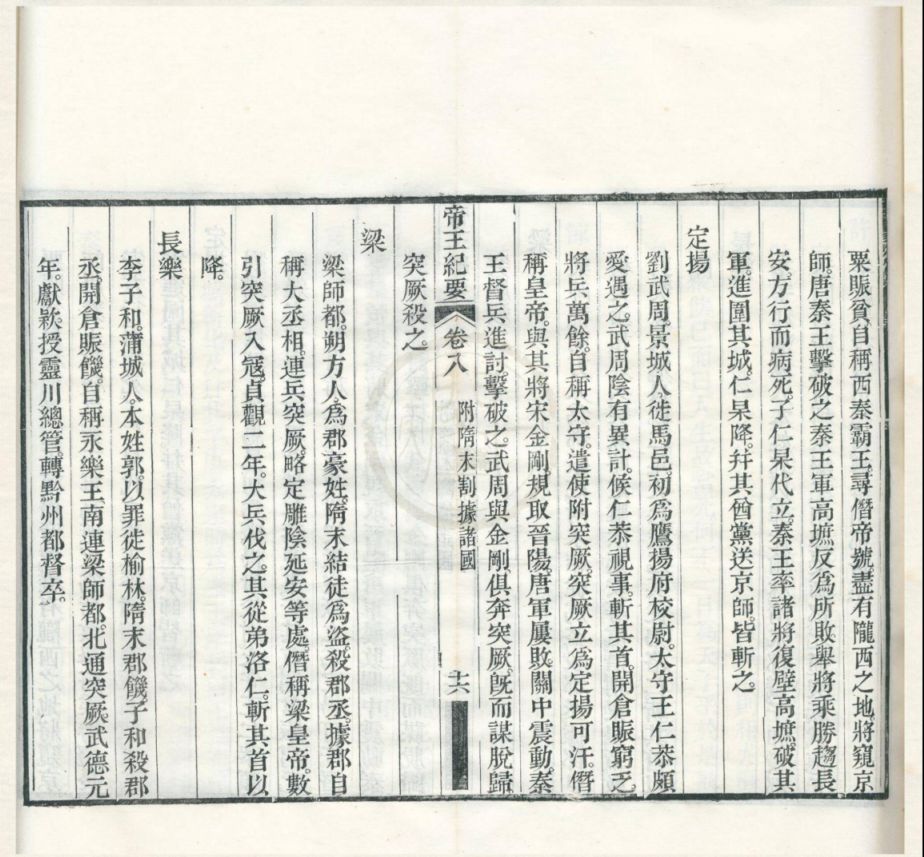 粟賑貧自稱西秦霸王尋僭帝號盡有隴西之地將窺京
師唐秦王擊破之秦王軍高墌反爲所敗舉將乘勝趨長
安方行而病死子仁杲代立秦王率諸將復壁高墌破其
軍進圍其城仁杲降幷其酋黨送京師皆斬之
定揚
劉武周景城人徙馬邑初爲鷹揚府校尉太守王仁恭頗
愛遇之武周陰有異計候仁恭視事斬其首開倉賑窮乏
將兵萬餘自稱太守遣使附突厥突厥立爲定揚可汗僭
稱皇帝與其將宋金剛規取晉陽唐軍屢敗關中震動秦
王督兵進討擊破之武周與金剛俱奔突厥旣而謀脫歸
帝王紀要 卷八 附隋末割據諸國 十六
突厥殺之
梁
梁師都朔方人爲郡豪姓隋末結徒爲盜殺郡丞據郡自
稱大丞相連兵突厥略定雕陰延安等處僭稱梁皇帝數
引突厥入冦貞觀二年大兵伐之其從弟洛仁斬其首以
降
長樂
李子和蒲城人本姓郭以罪徙榆林隋末郡饑子和殺郡
丞開倉賑饑自稱永樂王南連梁師都北通突厥武德元
年獻欵授靈川總管轉黔州都督卒